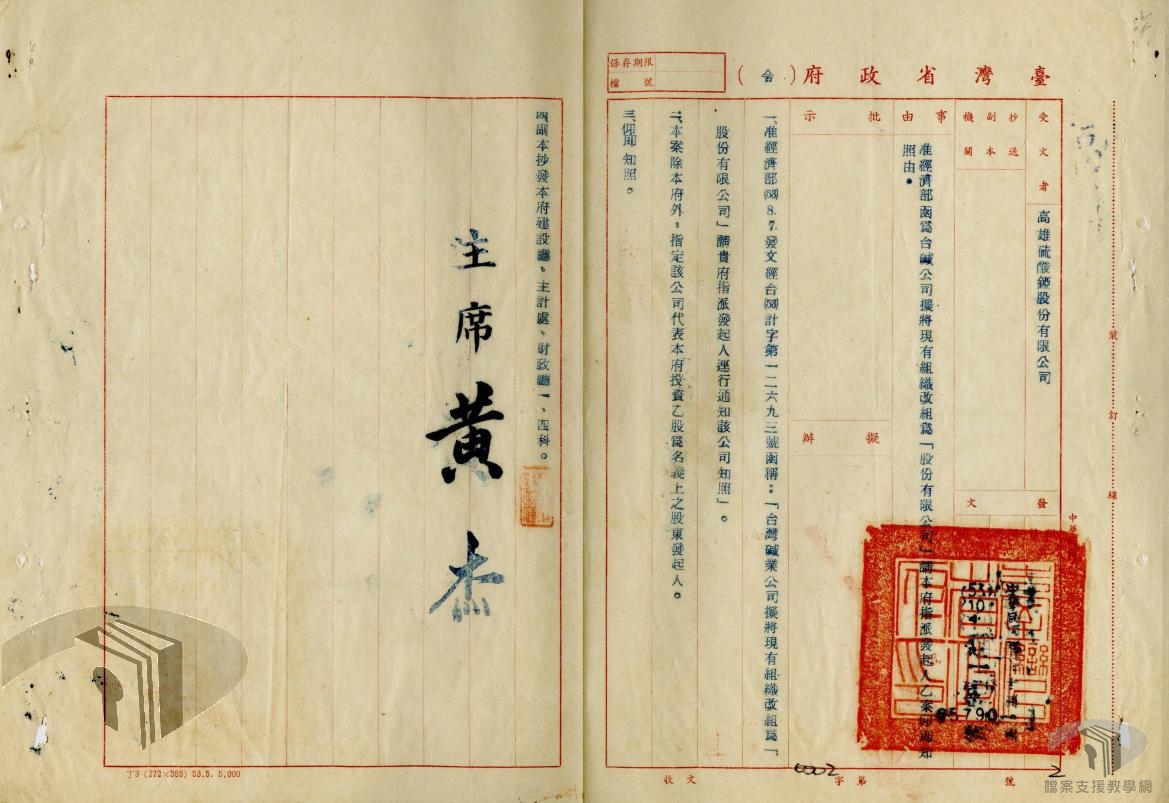 臺灣省政府(令)
保存期限
檔號
受文者
高雄硫酸錏股份有限公司
抄送
副本
機關
發
文
事由
准經濟部函為台鹼公司擬將現有組織改組為「股份有限公司」請本府指派發起人乙案仰即知
照由。
批示
擬辦
一、准經濟部(53)8.7.發文經台(53)計字第一二六九三號函稱：「台灣鹼業公司擬將現有組織改組為「
股份有限公司」請貴府指派發起人逕行通知該公司知照」。
二、本案除本府外，指定該公司代表本府投資乙股為名義上之股東發起人。
三、仰即知照。
四、副本抄發本府建設廳、主計處、財政廳一、四科。
主席 黃杰
53
10
65790
訂
線
收文 字第 號
0002
2
丁3 (272×385) 53.5. 5,000
檔案支援教學網